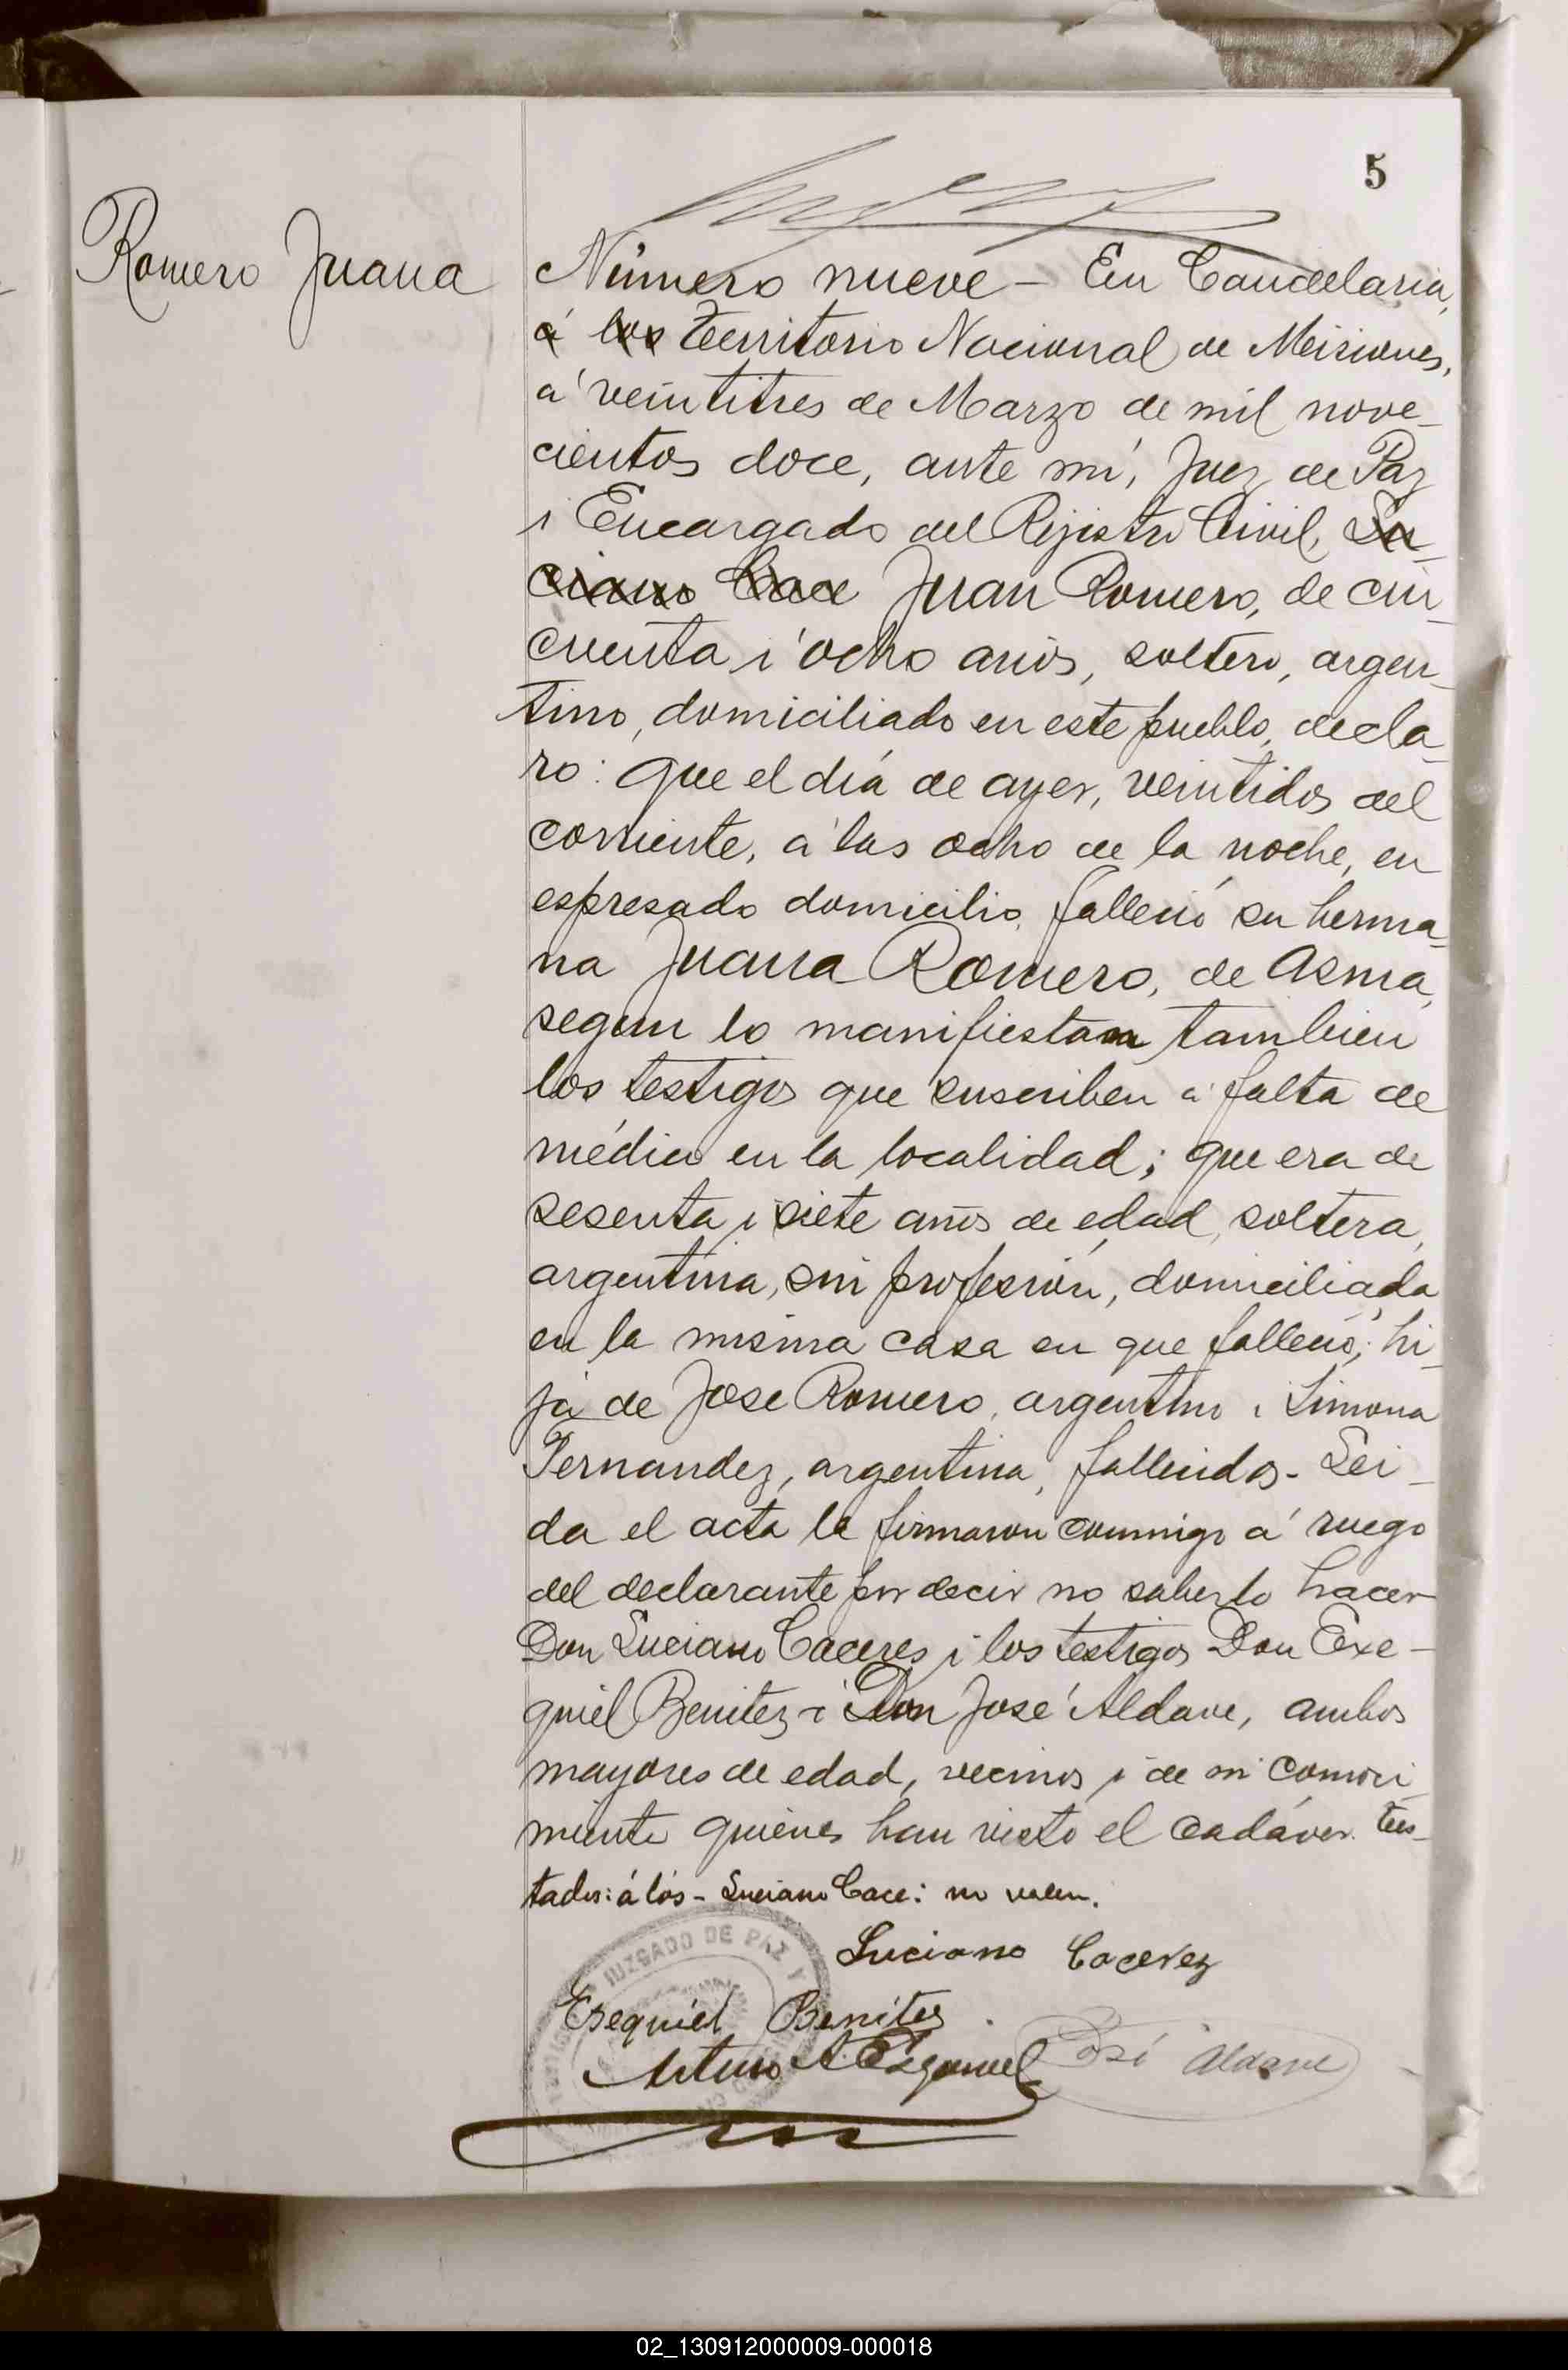 5
Romero Juana
Número nueve - En Candelaria,
á los Territorio Nacional de Misiones,
á veintitres de Marzo de mil nove-
cientos doce, ante mí, Juez de Paz
i Encargado del Rejistro Civil, Lu-
ciano Cace Juan Romero, de cin-
cuenta i ocho años, soltero, argen-
tino, domiciliado en este pueblo, decla-
ro: Que el día de ayer, veintidos del
corriente, á las ocho de la noche, en
espresado domicilio, falleció su herma-
na Juana Romero, de Asma,
segun lo manifiestan tambien
los testigos que suscriben á falta de
médico en la localidad; que era de
sesenta i siete años de edad, soltera,
argentina, sin profesión, domiciliada
en la misma casa en que falleció; hi-
ja de Jose Romero, argentino i Simona
Fernandez, argentina, fallecidos. - Lei-
da el acta la firmaron conmigo á ruego
del declarante por decir no saberlo hacer
Don Luciano Caceres i los testigos Don Exe-
quiel Benitez i Don José Aldave, ambos
mayores de edad, vecinos i de mi conoci-
miento quienes han visto el cadáver. Tes-
tados: á los - Luciano Cace: no valen.
Luciano Cacerez
JUZGADO DE PAZ Y
Esequiel Benites
José Aldave
Arturo A.
02_130912000009-000018